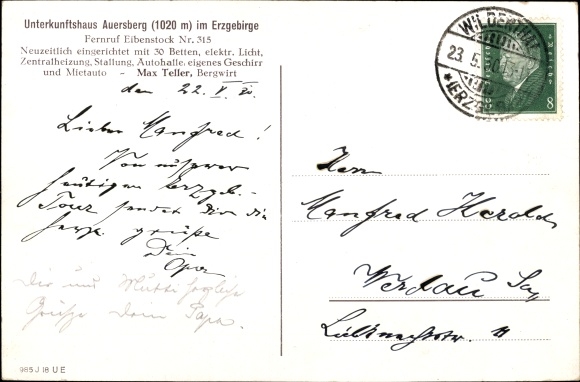 Unterkunftshaus Auersberg (1020 m) im Erzgebirge
Fernruf Eibenstock Nr. 315
Neuzeitlich eingerichtet mit 30 Betten, elektr. Licht,
Zentralheizung, Stallung, Autohalle, eigenes Geschirr
und Mietauto - Max Teller, Bergwirt
den 22. V. 30.
Lieber Manfred!
Von unserer
heutigen Erzgeb.-
Tour sendet Dir die
herzl. Grüße
Dein
Opa
Dir und Mutti herzliche
Grüße Dein Papa.
985 J 18 U E
WILDENTHAL
23. 5. 30
(ERZGEB.)
8
Herrn
Manfred Herold
Werdau Sa.